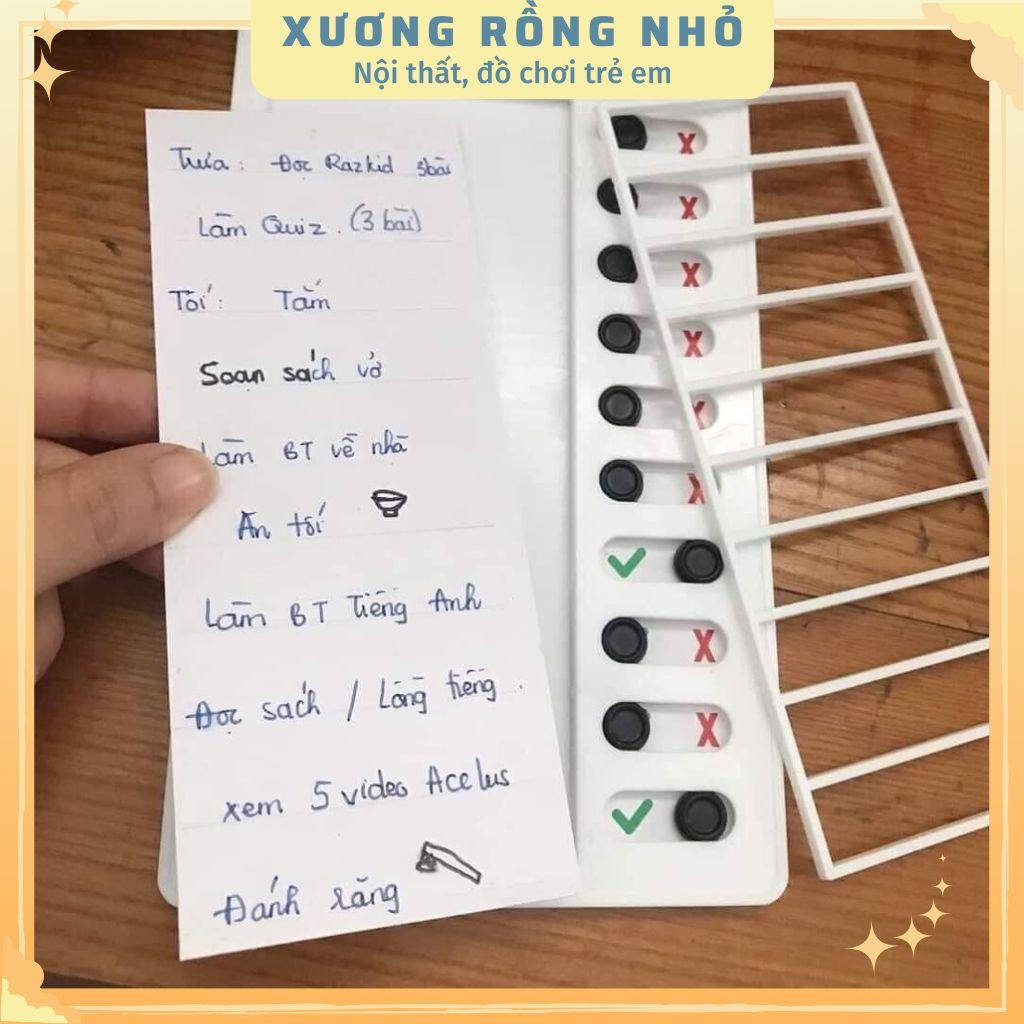 XƯƠNG RỒNG NHỎ
Nội thất, đồ chơi trẻ em
Trưa: Đọc Razkid 3bài
Làm Quiz. (3 bài)
Tối: Tắm
Soạn sách vở
Làm BT về nhà
Ăn tối
Làm BT Tiếng Anh
Đọc sách / Lồng tiếng.
xem 5 video Acelus
Đánh răng
X
X
X
X
X
X
✓
X
X
✓